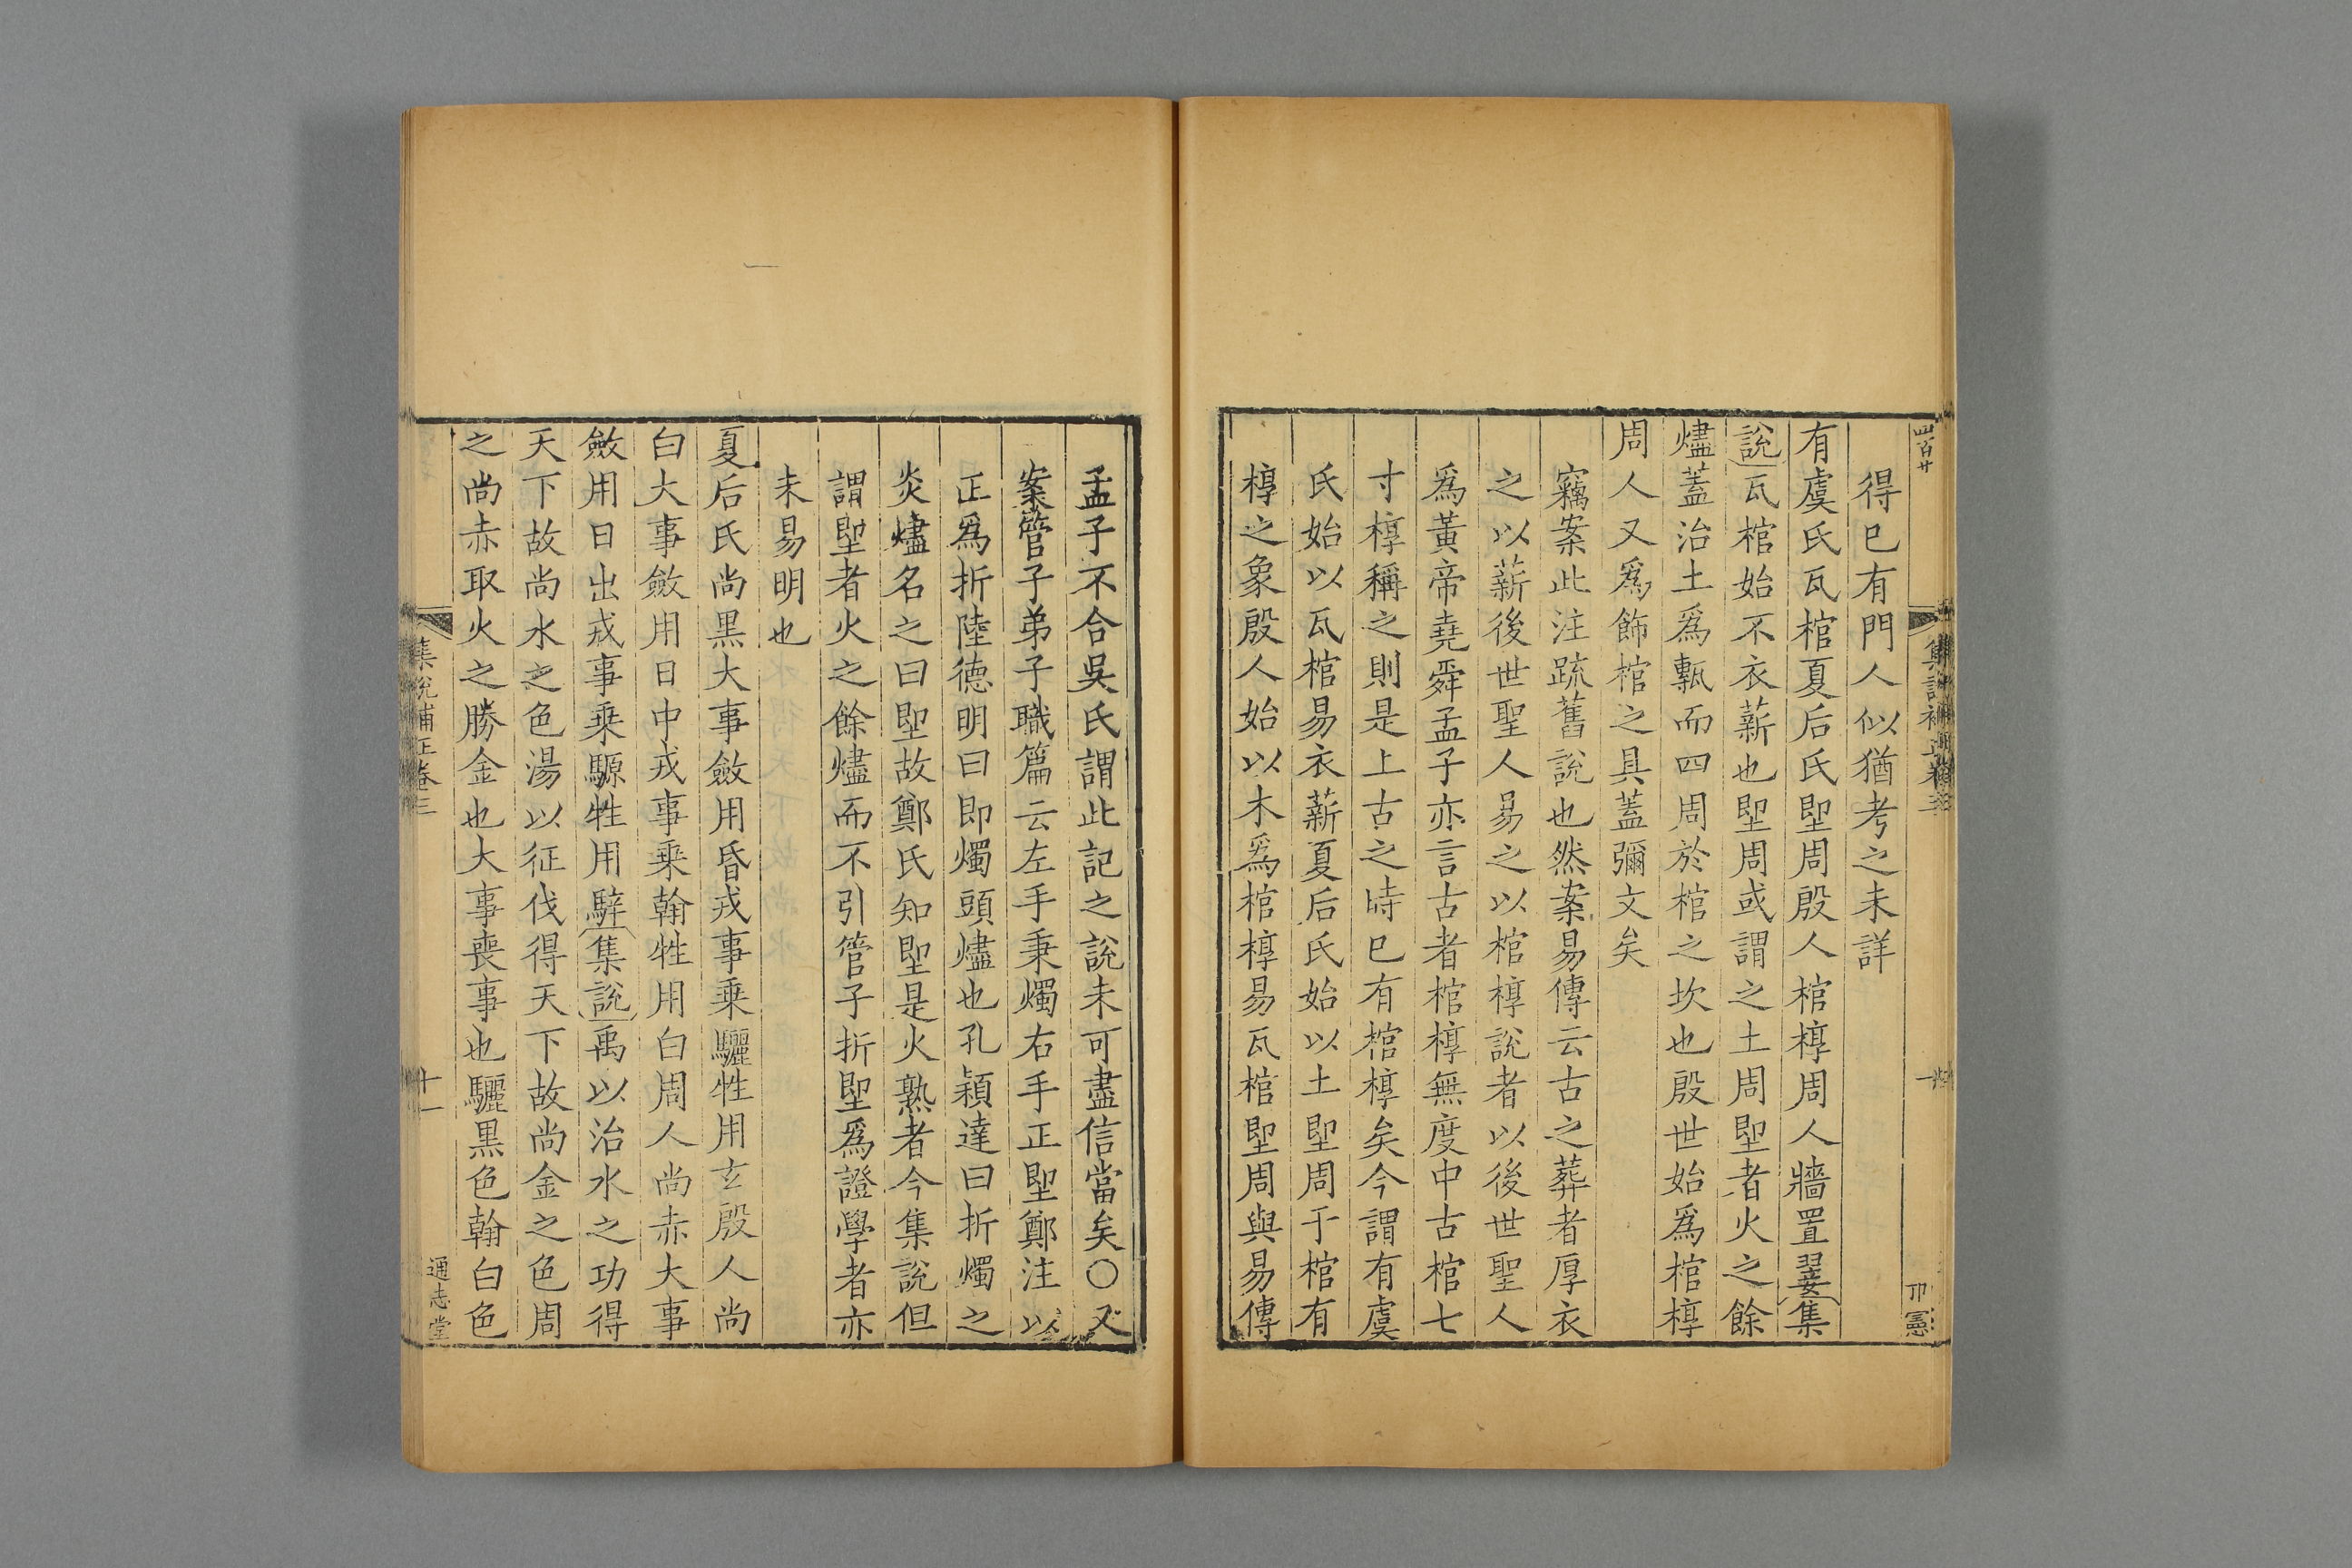 四百廿
得巳有門人似猶考之未詳
有虞氏瓦棺夏后氏堲周殷人棺椁周人牆置翣集
說瓦棺始不衣薪也堲周或謂之土周堲者火之餘
燼蓋治土爲甎而四周於棺之坎也殷世始爲棺椁
周人又爲飾棺之具蓋彌文矣
竊案此注疏舊說也然案易傳云古之葬者厚衣
之以薪後世聖人易之以棺椁說者以後世聖人
爲黃帝堯舜孟子亦言古者棺椁無度中古棺七
寸椁稱之則是上古之時巳有棺椁矣今謂有虞
氏始以瓦棺易衣薪夏后氏始以土堲周于棺有
椁之象殷人始以木爲棺椁易瓦棺堲周與易傳
孟子不合吳氏謂此記之說未可盡信當矣〇又
案管子弟子職篇云左手秉燭右手正堲鄭注以
正爲折陸德明曰即燭頭燼也孔穎達曰折燭之
炎燼名之曰堲故鄭氏知堲是火熟者今集說但
謂堲者火之餘燼而不引管子折堲爲證學者亦
未易明也
夏后氏尚黑大事斂用昏戎事乘驪牲用玄殷人尚
白大事斂用日中戎事乘翰牲用白周人尚赤大事
斂用日出戎事乘騵牲用騂集說禹以治水之功得
天下故尚水之色湯以征伐得天下故尚金之色周
之尚赤取火之勝金也大事喪事也驪黑色翰白色
集說補正卷三
十一
通志堂